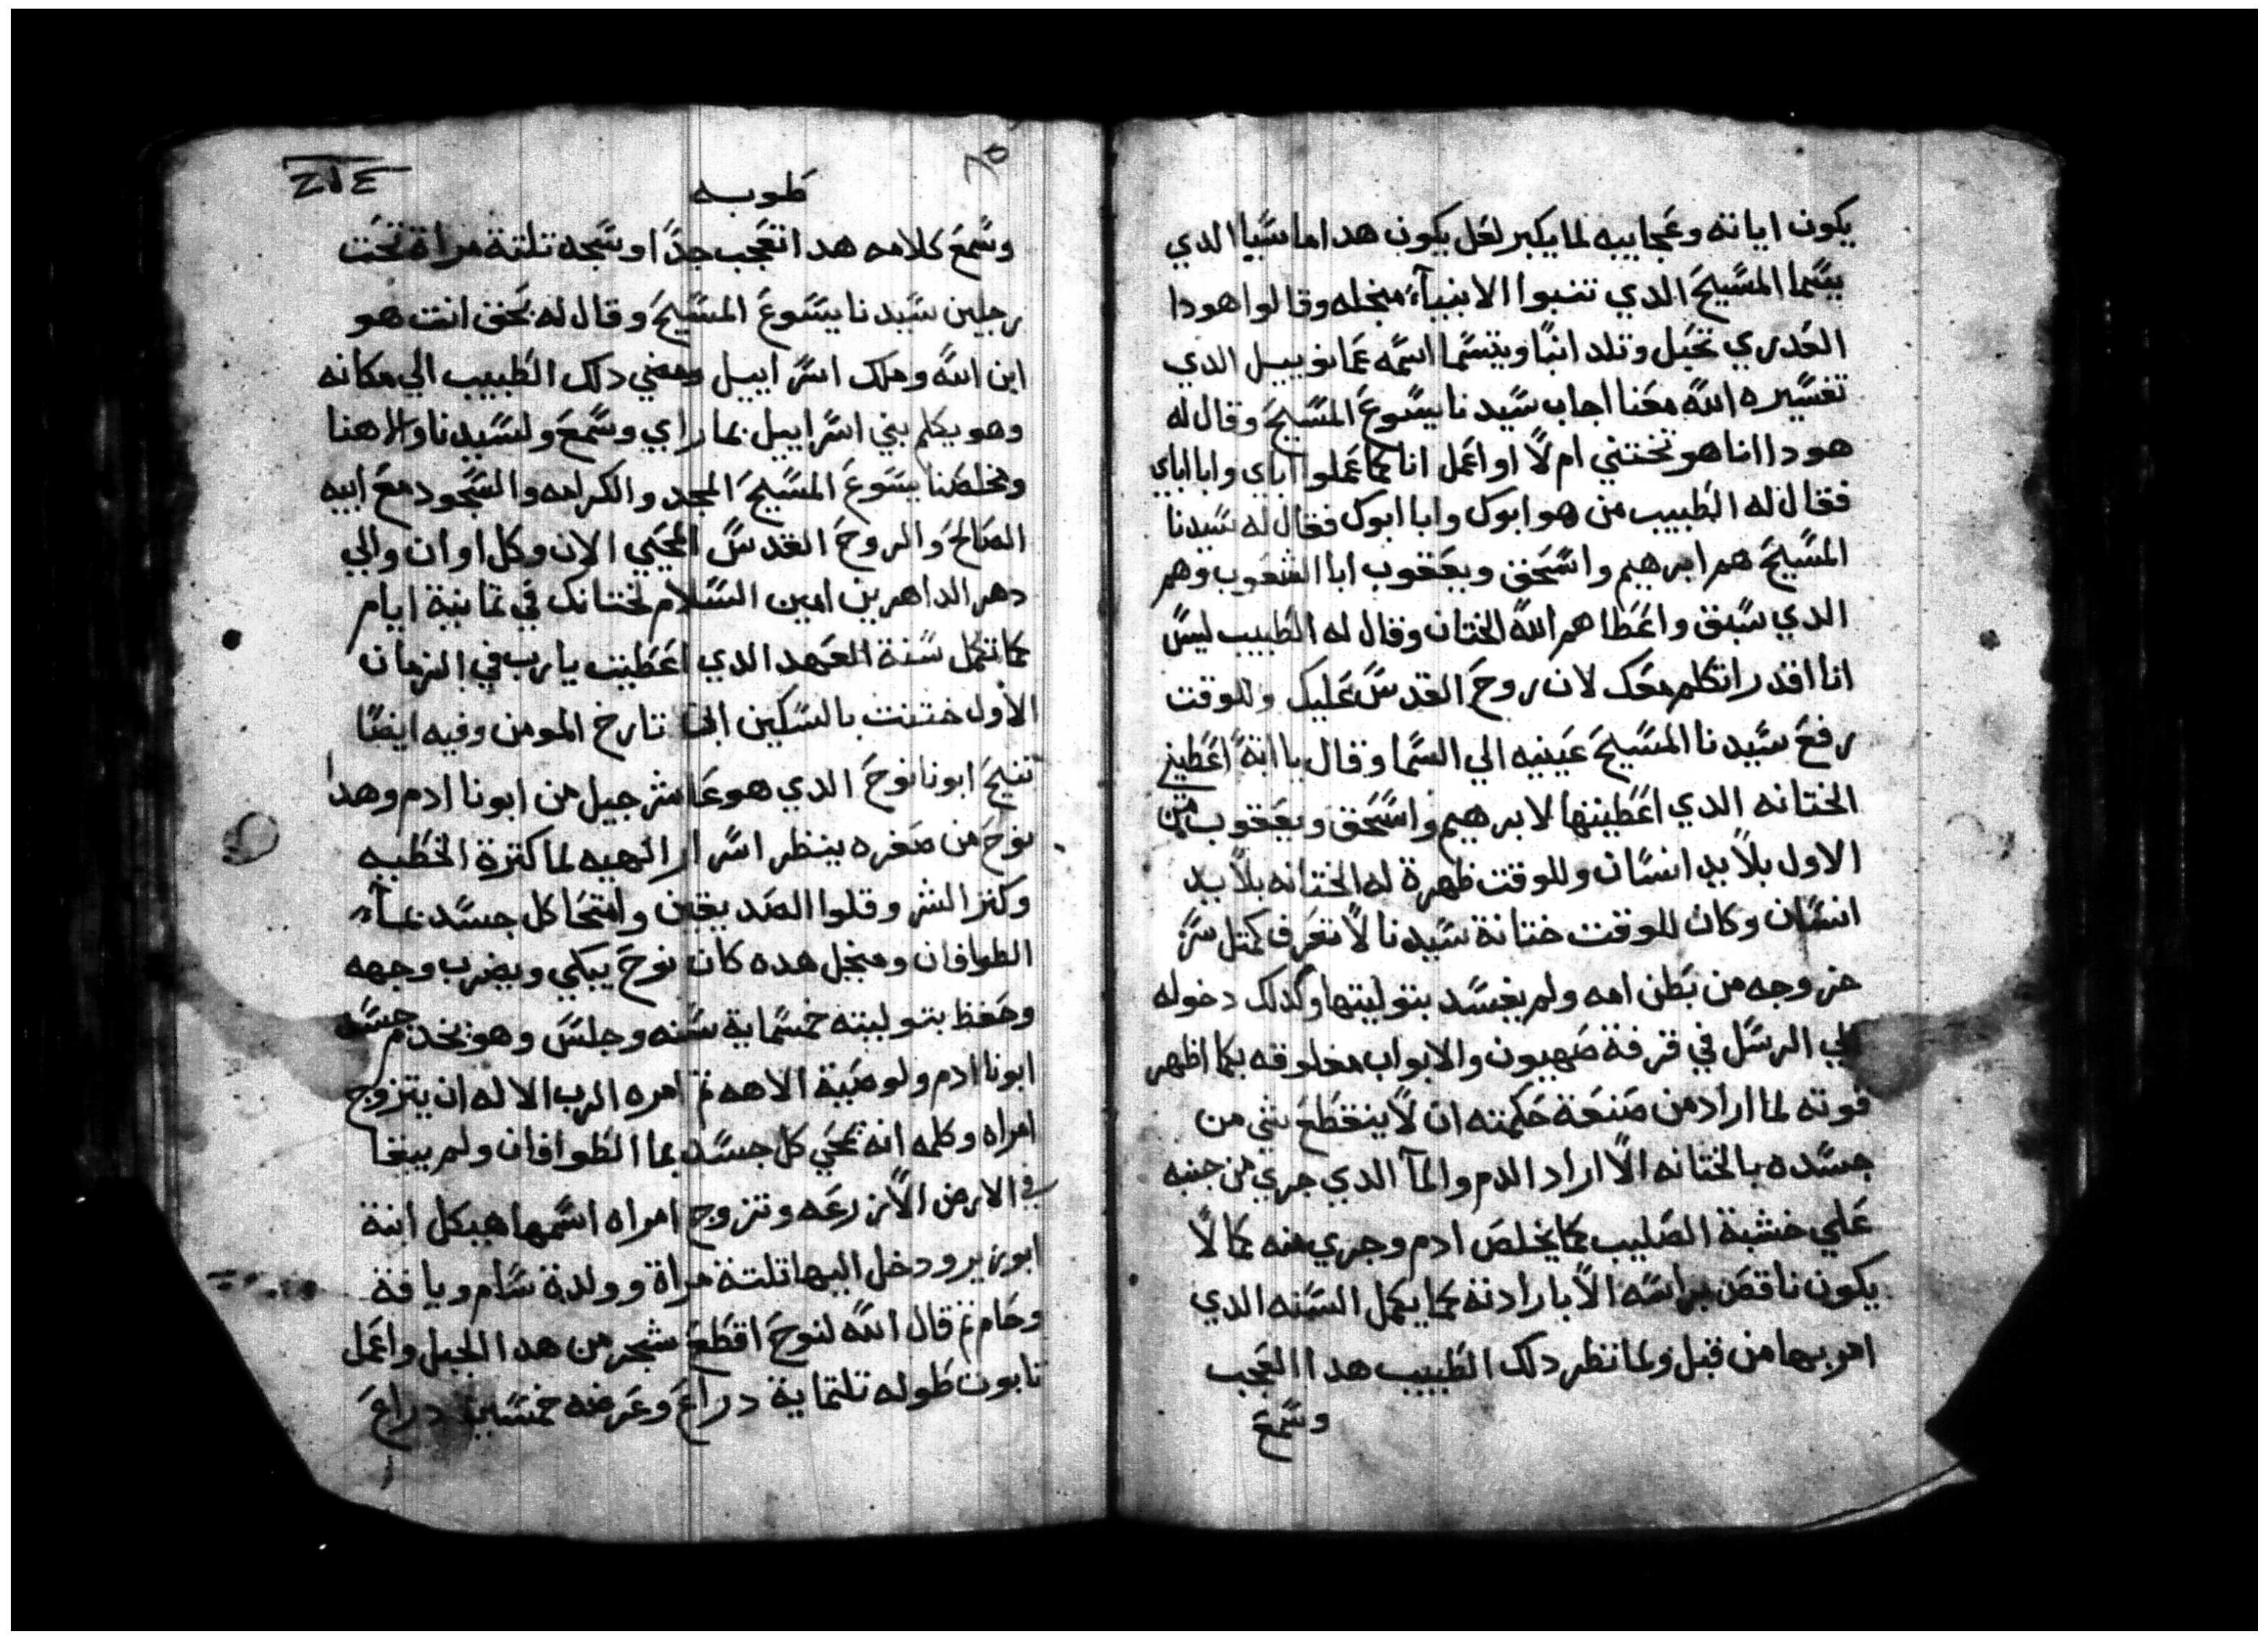 يكون اياته وعجايبه لما يكبر لعل يكون هدا ماسيا الدي
يتسما المسيح الدي تنبوا الانبيآء منجله وقالوا هودا
العدري تحبل وتلد ابنا ويتسما اسمه عمانوييل الدي
تفسيره الله معنا اجاب سيدنا يسوع المسيح وقال له
هودا انا هو تختنني ام لا او اعمل انا كما عملوا اباي وابا اباي
فقال له الطبيب من هو ابوك وابا ابوك فقال له سيدنا
المسيح هم ابرهيم واسحق ويعقوب ابا الشعوب وهم
الدي سبق واعطاهم الله الختان وقال له الطبيب ليس
انا اقدر اتكلم معك لان روح القدس عليك وللوقت
رفع سيدنا المسيح عينيه الي السما وقال يا ابة اعطيني
الختانه الدي اعطيتها لابرهيم واسحق ويعقوب من
الاول بلا يد انسان وللوقت ظهرة له الختانه بلا يد
انسان وكان للوقت ختانة سيدنا لا تعرف كمتل سر
خروجه من بطن امه ولم يفسد بتوليتها وكدلك دخوله
الي الرسل في قرفة صهيون والابواب مغلوقه بكما اظهر
قوته لما اراد من صنعة حكمته ان لا ينقطع شي من
جسده بالختانه الا اراد الدم والمآ الدي جري من جنبه
علي خشبة الصليب كما يخلص ادم وجري منه كما لا
يكون ناقص براسه الا بارادته كما يكمل السنه الدي
امر بها من قبل ولما نظر دلك الطبيب هدا العجب
وسمع
طوبه
وسمع كلامه هدا تعجب جدا وسجد تلتة مراة تحت
رجلين سيدنا يسوع المسيح وقال له بحق انت هو
ابن الله وملك اسراييل ومضي دلك الطبيب الي مكانه
وهو يكلم بني اسراييل بما راي وسمع ولسيدنا والاهنا
ومخلصنا يسوع المسيح المجد والكرامه والسجود مع ابيه
الصالح والروح القدس المحيي الان وكل اوان والي
دهر الداهرين امين السلام لختانك في تمانية ايام
كما تكمل سنة العهد الدي اعطيت يارب في الزمان
الاول ختنت بالسكين ابن تارخ المومن وفيه ايضا
تنيح ابونا نوح الدي هو عاشر جيل من ابونا ادم وهدا
نوح من صغره ينظر اسرار الهيه لما كترة الخطيه
وكتر الشر وقلوا الصديقين وامتحا كل جسد بمآء
الطوافان ومنجل هده كان نوح يبكي ويضرب وجهه
وحفظ بتوليته خمسماية سنه وجلس وهو يخدم جسد
ابونا ادم ولوصية الاهه تم امره الرب الاله ان يتزوج
امراه وكلمه انه يمحي كل جسد بما الطوافان ولم يبقا
في الارض الا زرعه وتزوج امراه اسمها هيكل ابنة
ابوزير ودخل اليها تلتة مراة وولدة سام ويافة
وحام تم قال الله لنوح اقطع شجر من هدا الجبل واعمل
تابوت طوله تلتماية دراع وعرضه خمسين دراع